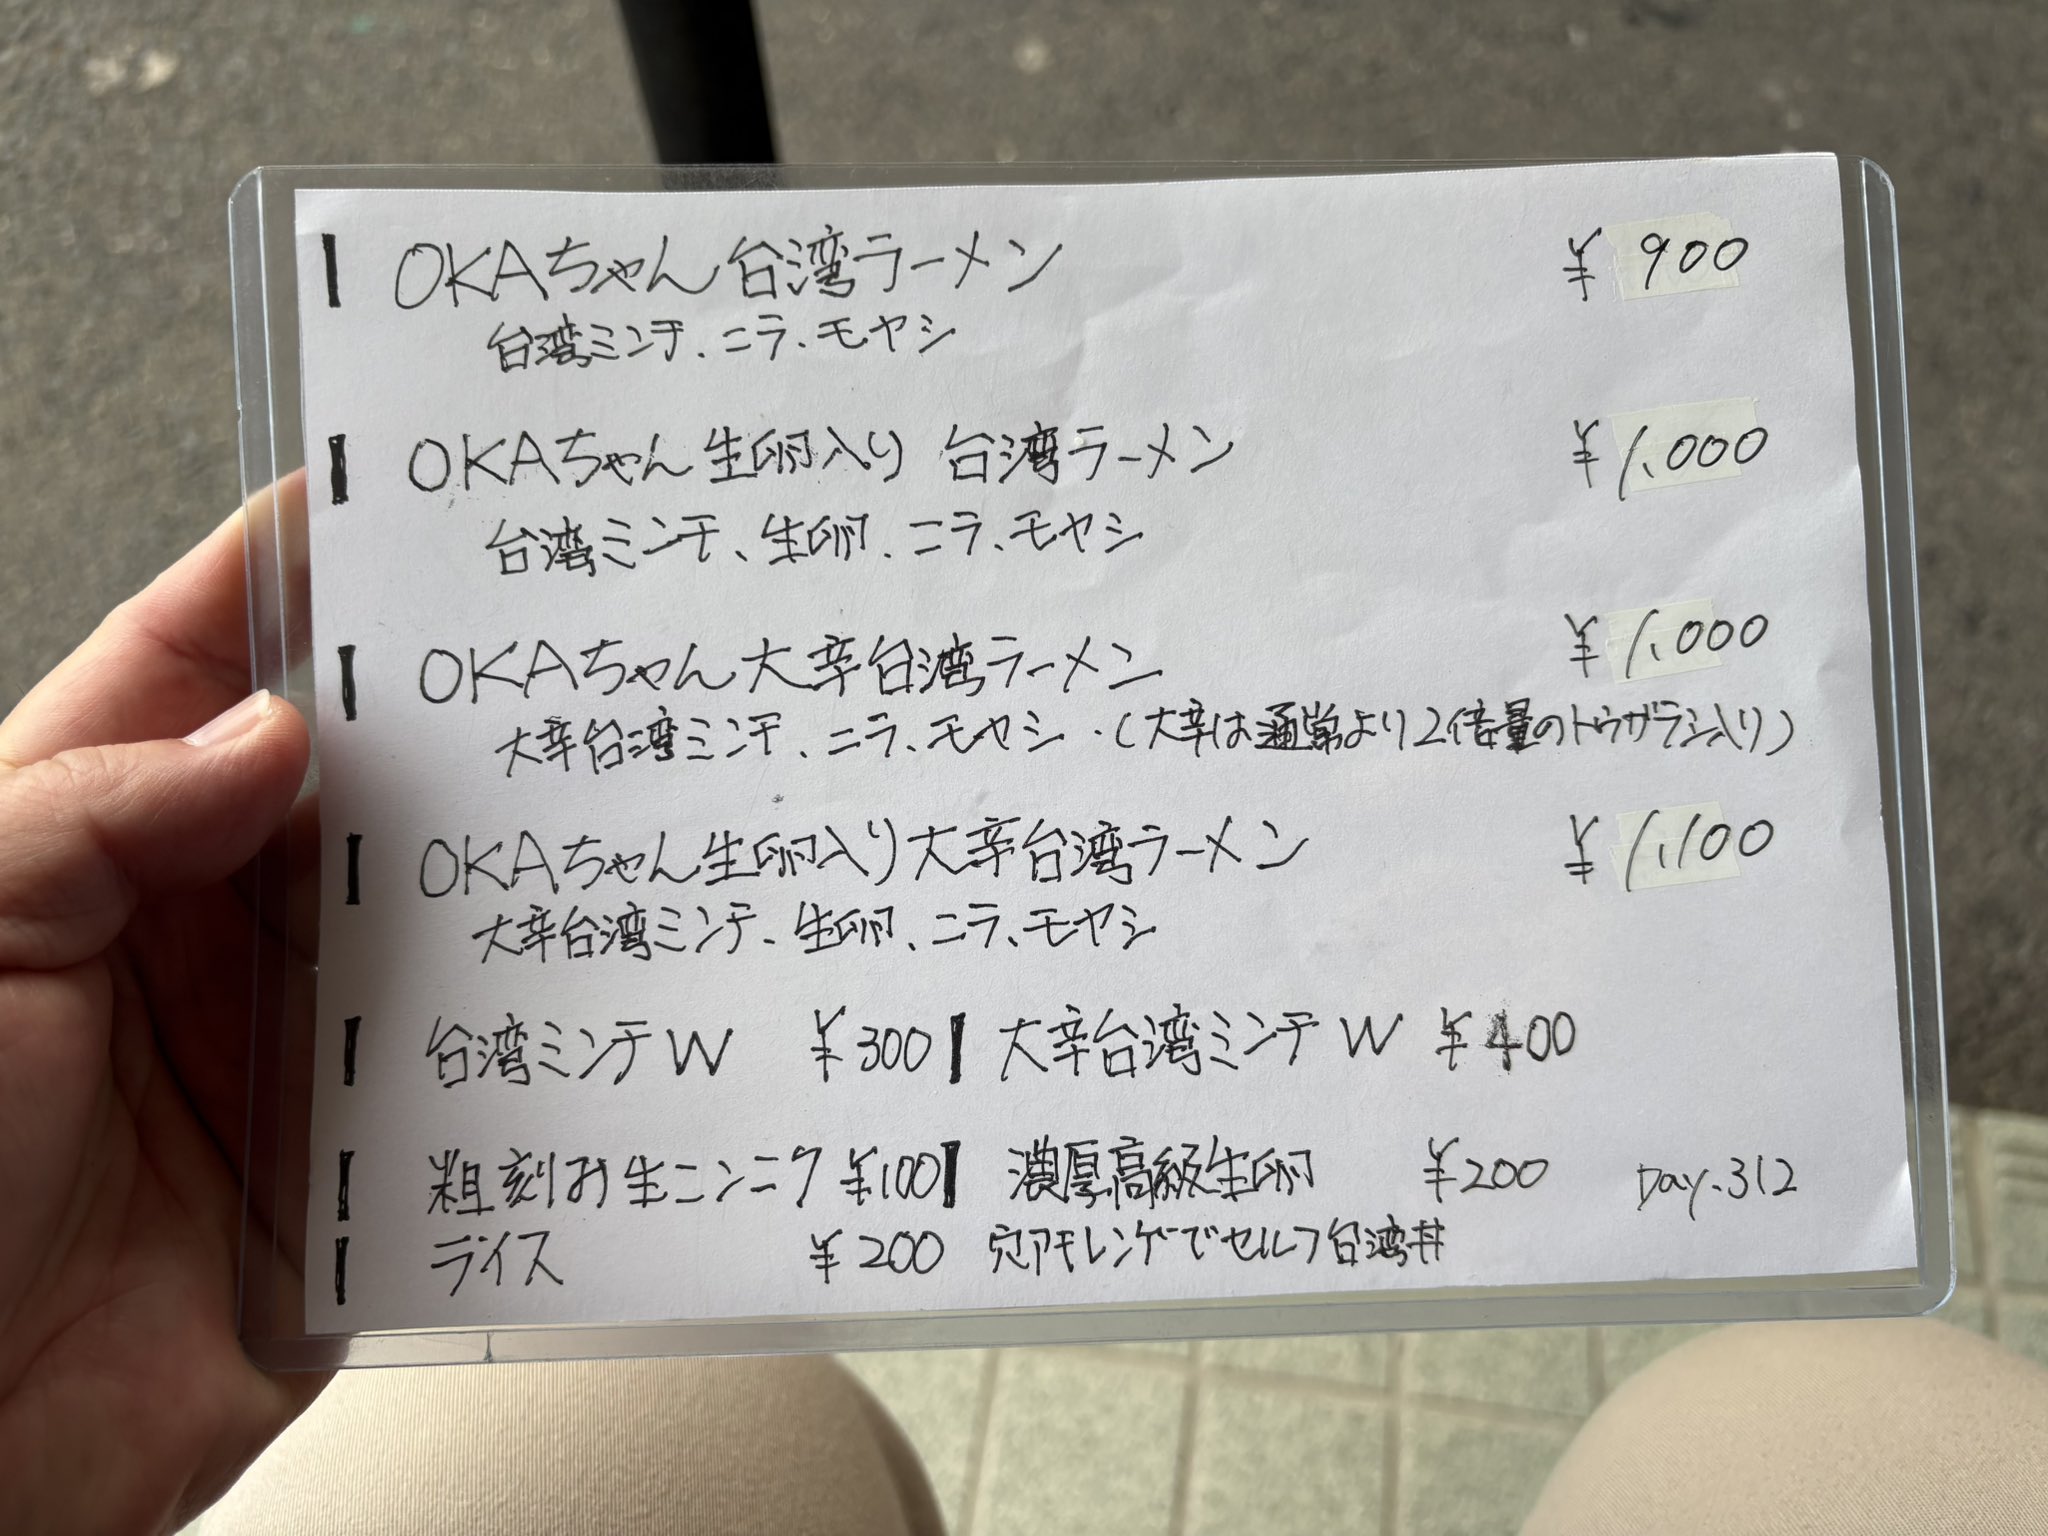 OKAちゃん台湾ラーメン ¥900
台湾ミンチ、ニラ、モヤシ
OKAちゃん生卵入り 台湾ラーメン ¥1,000
台湾ミンチ、生卵、ニラ、モヤシ
OKAちゃん大辛台湾ラーメン ¥1,000
大辛台湾ミンチ、ニラ、モヤシ・(大辛は通常より2倍量のトウガラシ入り)
OKAちゃん生卵入り大辛台湾ラーメン ¥1,100
大辛台湾ミンチ、生卵、ニラ、モヤシ
台湾ミンチW ¥300 大辛台湾ミンチW ¥400
粗刻み生ニンニク ¥100 濃厚高級生卵 ¥200 Day.312
ライス ¥200 穴アキレンゲでセルフ台湾丼